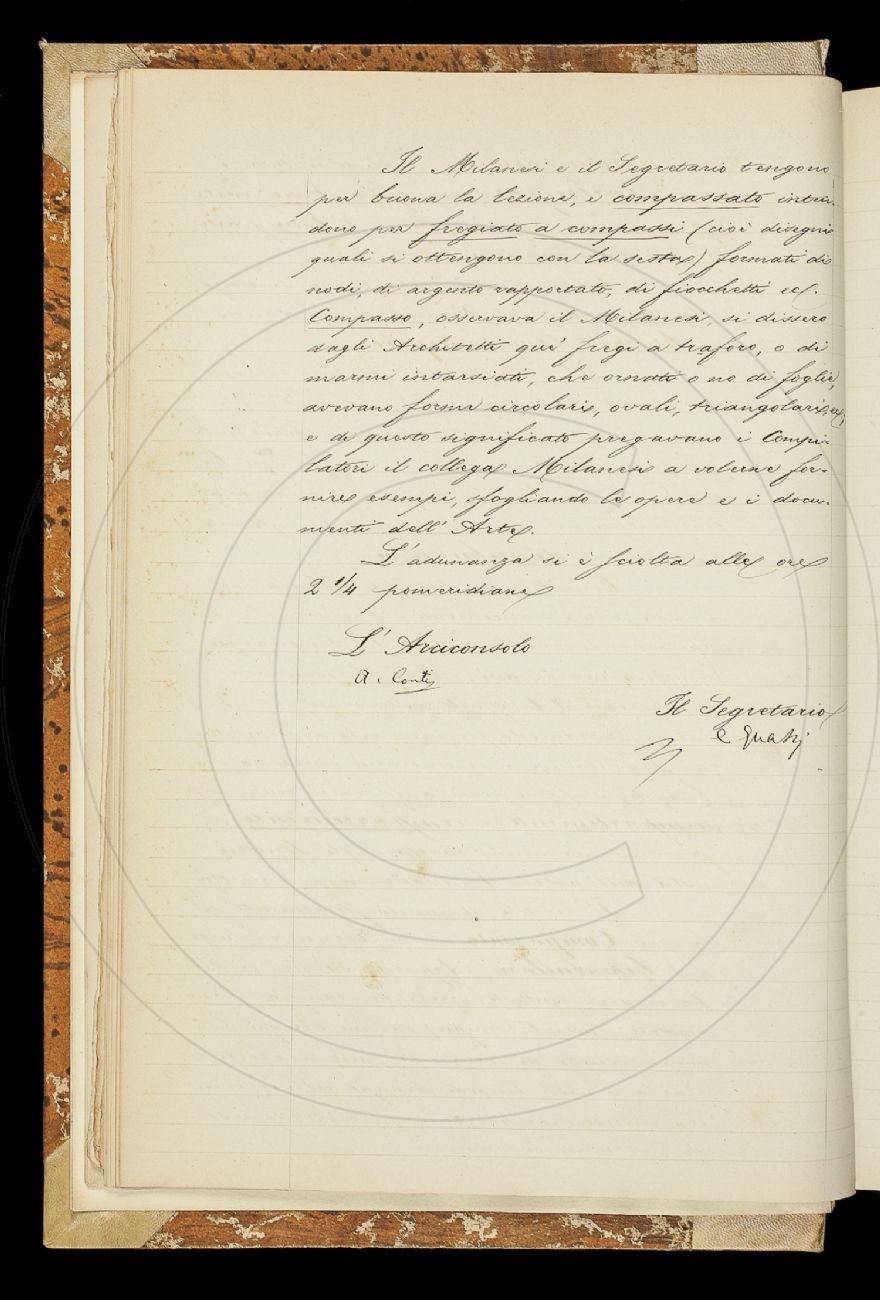 Il Milanesi e il Segretario tengono
per buona la lezione, e compassato inten-
dono per fregiato a compassi (cioè disegni
quali si ottengono con la sesta) formati di
nodi, di argento rapportato, di fiocchetti ec.
Compasso, osservava il Milanesi, si dissero
dagli Architetti que' fregi a traforo, o di
marmi intarsiati, che ornati o no di foglie,
avevano forme circolari, ovali, triangolari, ec;
e di questo significato pregavano i Compi-
latori il collega Milanesi a volerne for-
nire esempi, sfogliando le opere e i docu-
menti dell' Arte.
L'adunanza si è sciolta alle ore
2 1/4 pomeridiane
L' Arciconsolo
A. Conti
Il Segretario